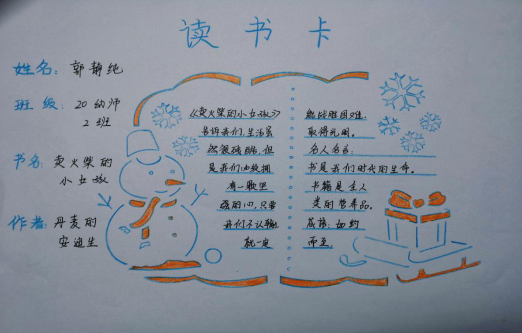 读书卡
姓名: 郭静纯
班级: 20幼师
2班
书名: 卖火柴的
小女孩
作者: 丹麦的
安迪生
《卖火柴的小女孩》
告诉我们,生活虽
然很残酷,但
是我们必须拥
有一颗坚
强的心,只要
我们不认输,
就一定
能战胜困难,
取得光明。
名人名言:
书是我们时代的生命。
书籍是全人
类的营养品。
成语:如约
而至。